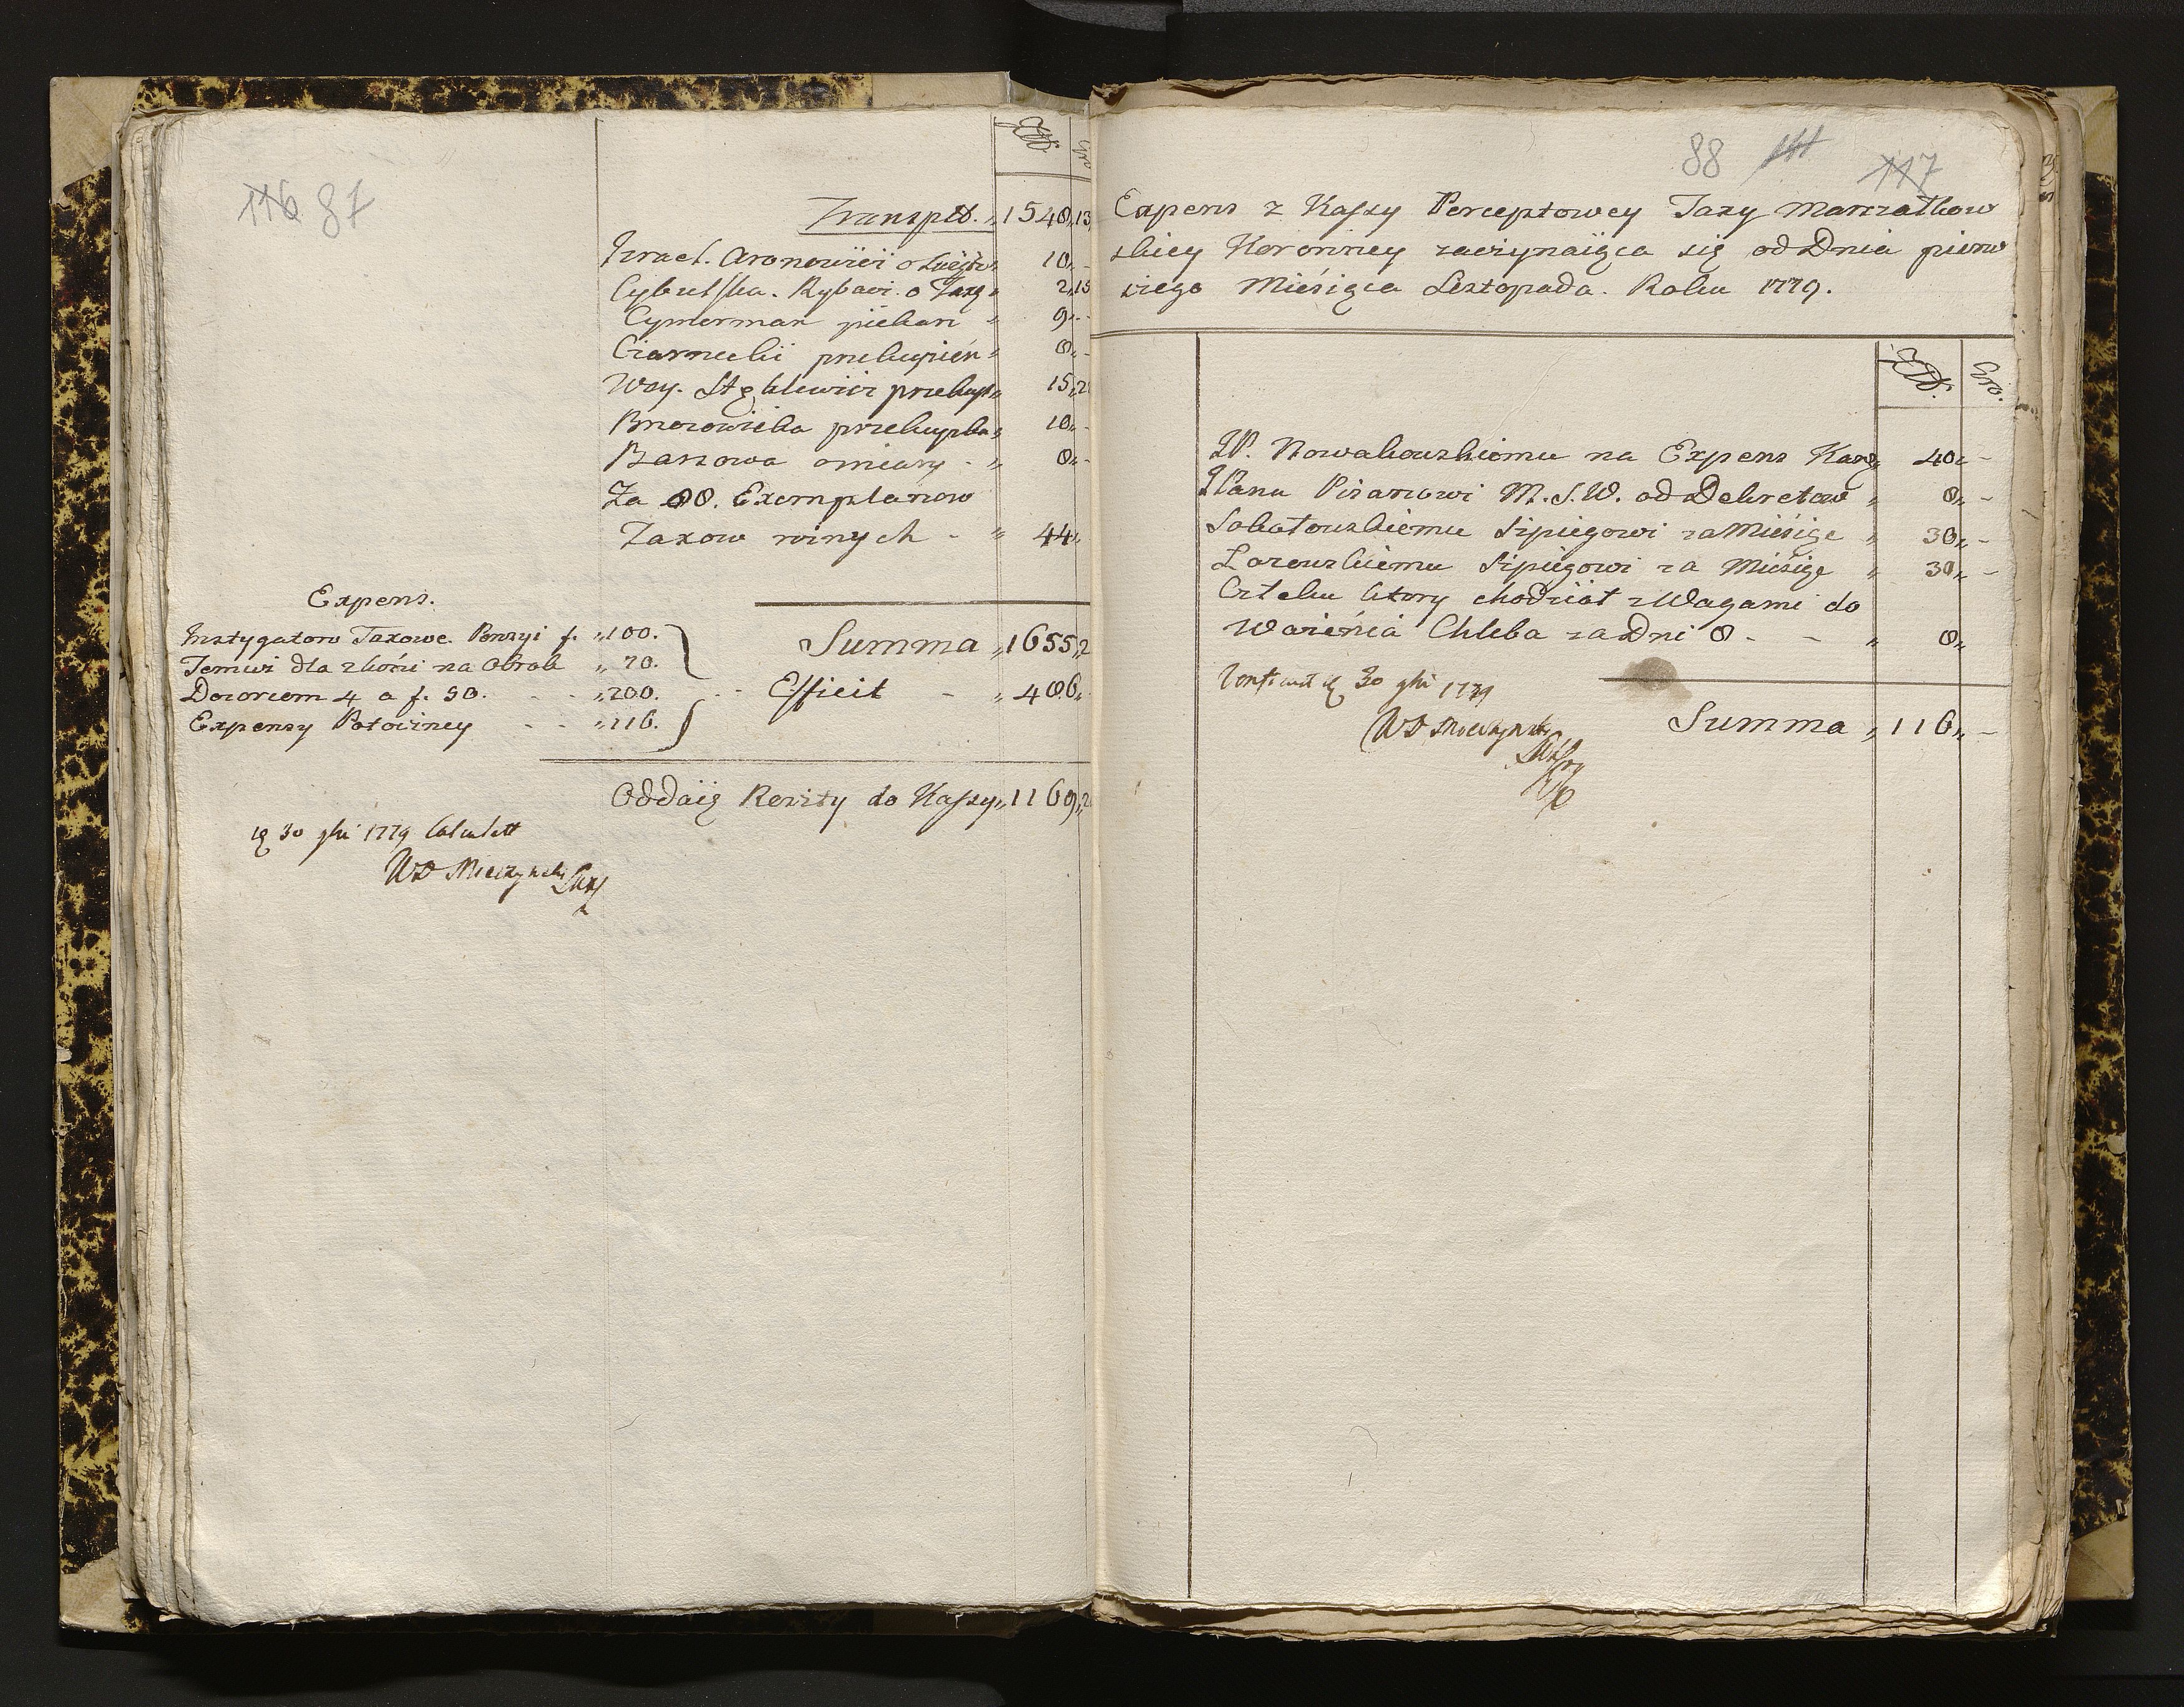 116 87
Zł. Gro
Transplt. „ 1548„13
Izrael. Aronowicz o 10„-
Cybulska. Rybacz. o Taxę „ 2„15
Cymerman piekarz „ 9„-
Czarnecki przekupień „ 8„-
Woy. Stęblewicz przekup „ 15„2
Brzozowicka przekupka „ 10„-
Barszowa omiary - „ 8„-
Za 88. Exemplarzow
Taxow roznych - „ 44„
Expens.
Instygatorw Taxowe. Pensyi f. „100.
Temuż dla zkoni na Obrok „ 70.
Dozorcom 4 a f. 50. - - „200.
Expensy Potoczney - - „116.
Summa „1655„2
Efficit - „486„
Oddaię Reszty do Kassy „1169„2
d 30 9bri 1779 Calculatt
WD Mieczynski
88 111 117
Expens z Kassy Perceptowey Taxy Marszałkow
skiey Koronney zaczynaiąca się od Dnia pierw
szego Miesiąca Listopada. Roku 1779.
Zł. Gro.
JP. Nowakowskiemu na Expens Kanc „ 40„ -
JPanu Pisarzowi M.S.W. od Dekretow „ 8„ -
Sobotowskiemu Szpiegowi za Miesiąc „ 30„ -
Lozowskiemu Szpiegowi za Miesiąc „ 30„ -
Czteku ktory chodził z Wagami do
Ważenia Chleba za Dni 8 - - „ 8„
d 30 9bri 1779
WD Mieczynski
Summa „ 116„ -